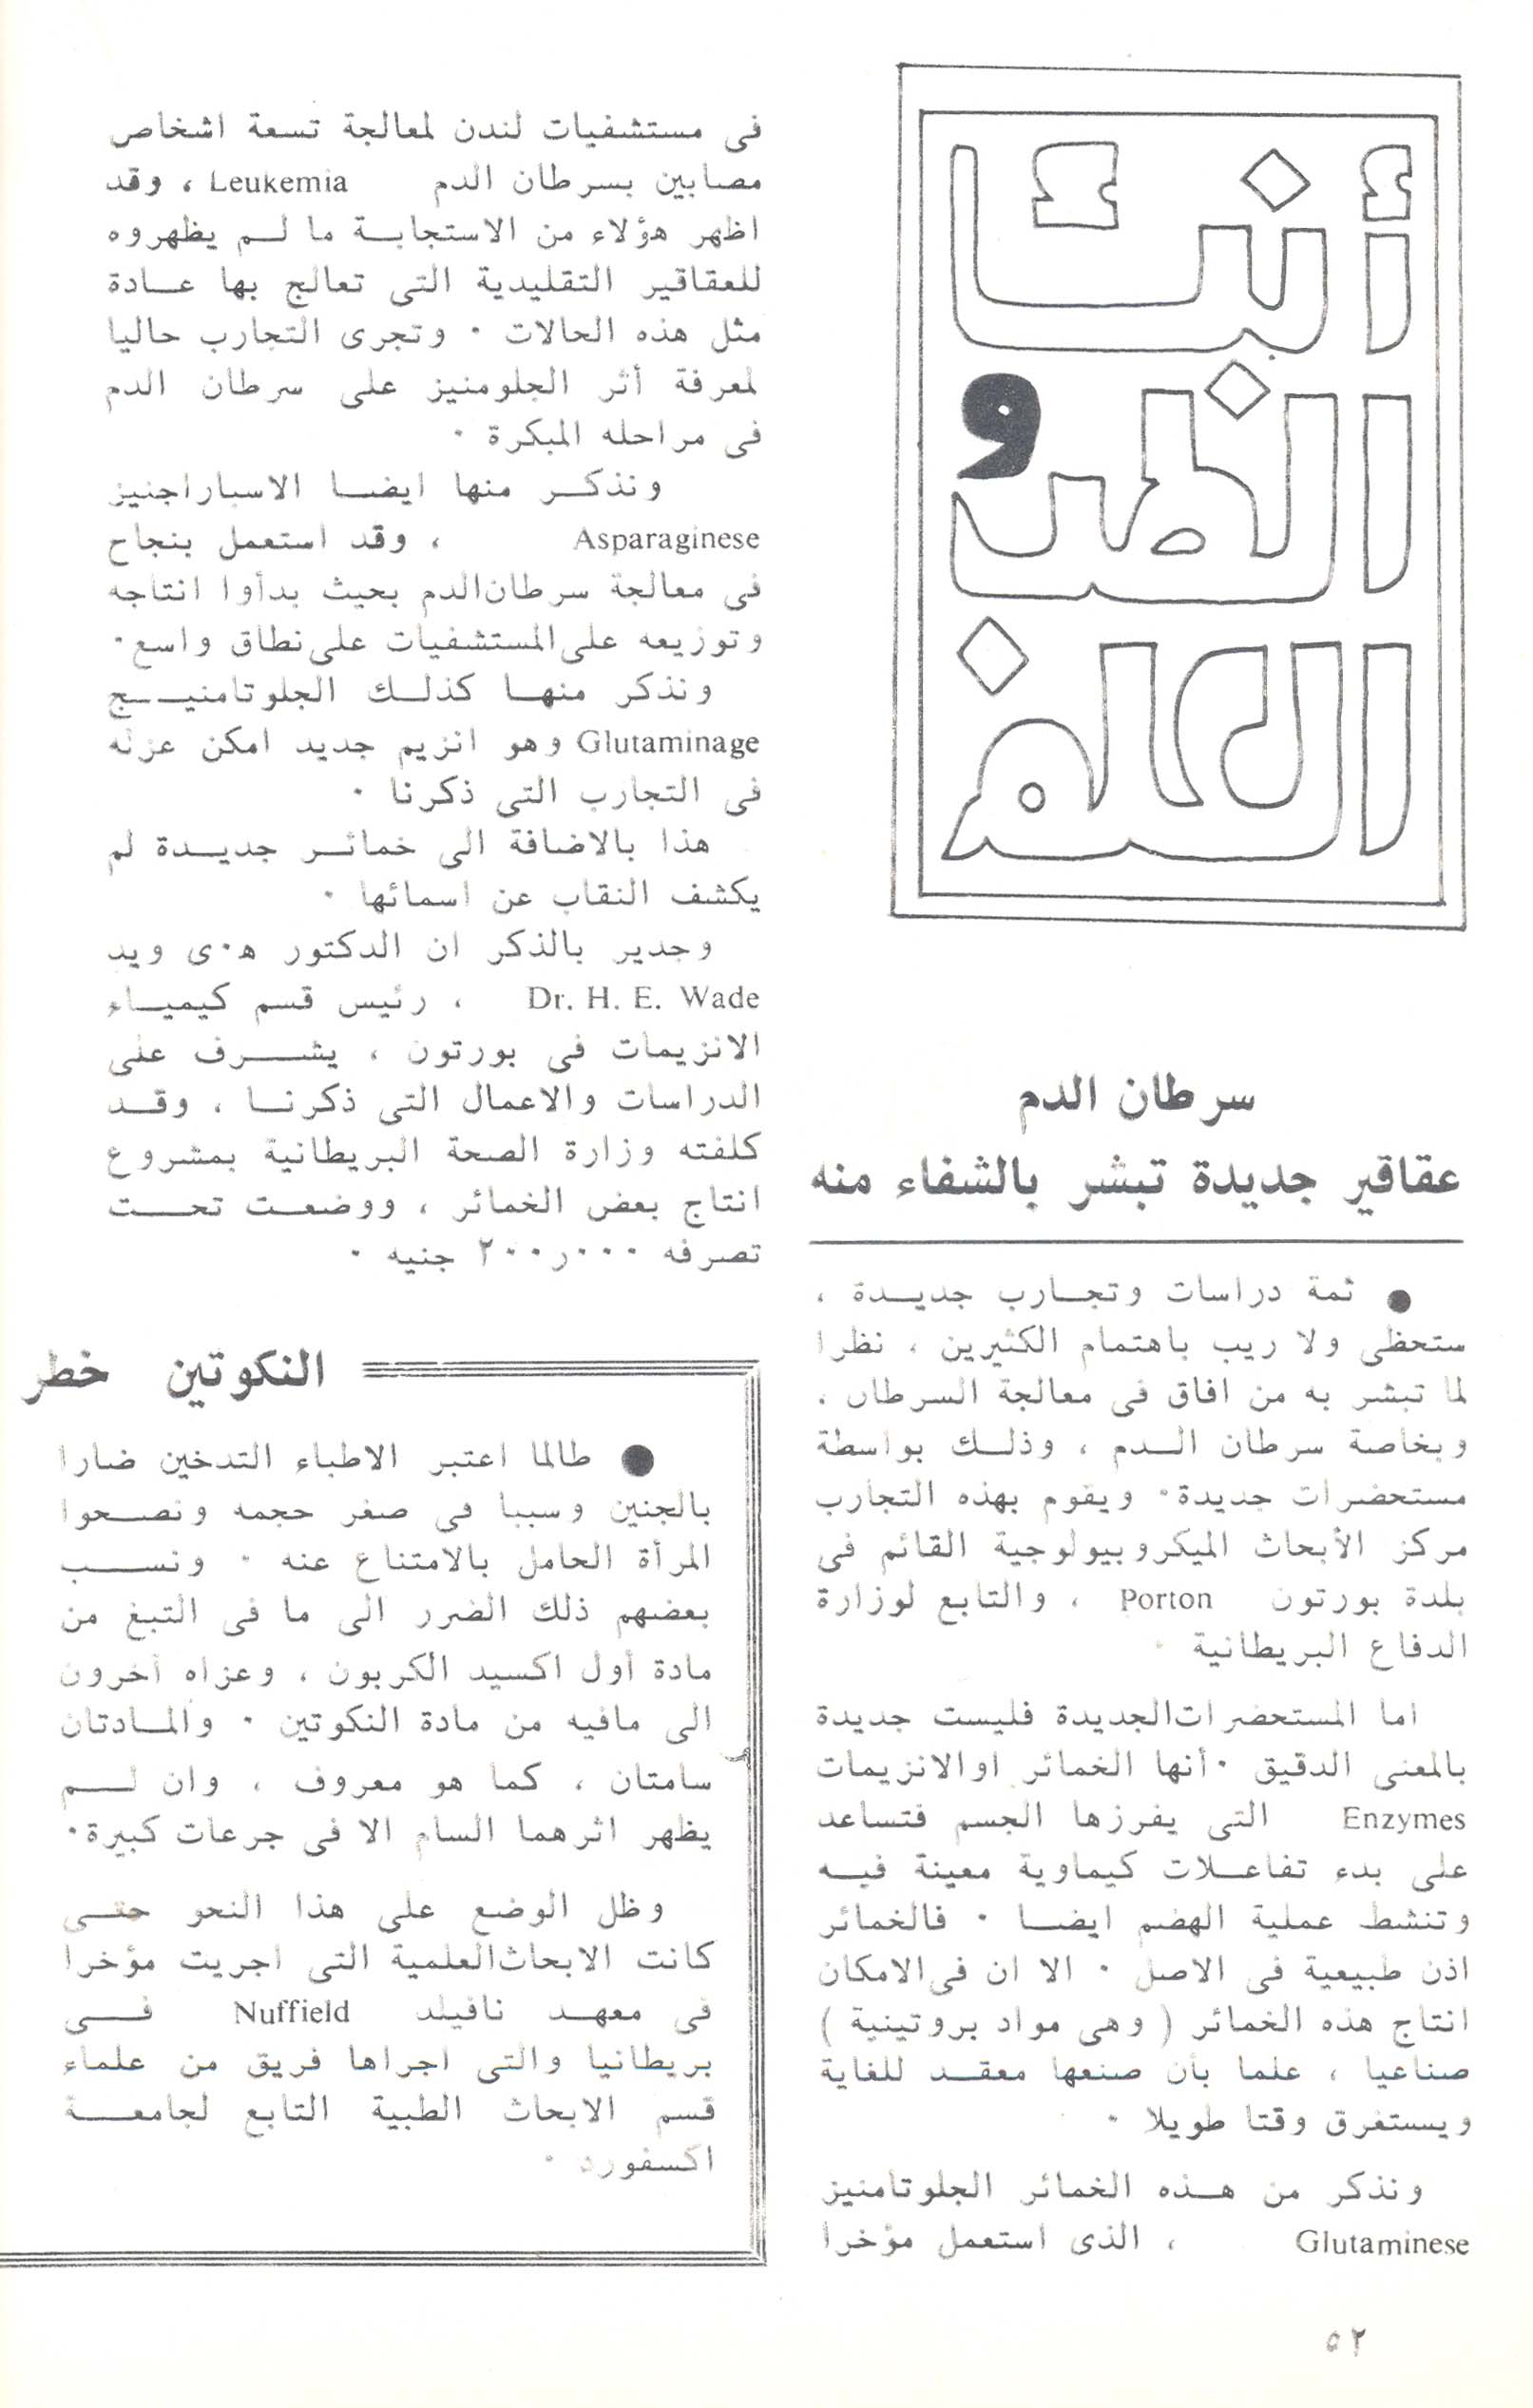 أنباء
الطب و
العلم
سرطان الدم
عقاقير جديدة تبشر بالشفاء منه
● ثمة دراسات وتجارب جديدة ،
ستحظى ولا ريب باهتمام الكثيرين ، نظرا
لما تبشر به من افاق فى معالجة السرطان ،
وبخاصة سرطان الدم ، وذلك بواسطة
مستحضرات جديدة٠ ويقوم بهذه التجارب
مركز الأبحاث الميكروبيولوجية القائم فى
بلدة بورتون Porton ، والتابع لوزارة
الدفاع البريطانية ٠
اما المستحضرات الجديدة فليست جديدة
بالمعنى الدقيق ٠أنها الخمائر اوالانزيمات
Enzymes التى يفرزها الجسم فتساعد
على بدء تفاعلات كيماوية معينة فيه
وتنشط عملية الهضم ايضا ٠ فالخمائر
اذن طبيعية فى الاصل ٠ الا ان فى الامكان
انتاج هذه الخمائر ( وهى مواد بروتينية )
صناعيا ، علما بأن صنعها معقد للغاية
ويستغرق وقتا طويلا ٠
ونذكر من هذه الخمائر الجلوتامنيز
Glutaminese ، الذى استعمل مؤخرا
فى مستشفيات لندن لمعالجة تسعة اشخاص
مصابين بسرطان الدم Leukemia ، وقد
اظهر هؤلاء من الاستجابة ما لم يظهروه
للعقاقير التقليدية التى تعالج بها عادة
مثل هذه الحالات ٠ وتجرى التجارب حاليا
لمعرفة أثر الجلومنيز على سرطان الدم
فى مراحله المبكرة ٠
ونذكر منها ايضا الاسباراجنيز
Asparaginese ، وقد استعمل بنجاح
فى معالجة سرطان الدم بحيث بدأوا انتاجه
وتوزيعه على المستشفيات على نطاق واسع٠
ونذكر منها كذلك الجلوتامنيج
Glutaminage وهو انزيم جديد امكن عزله
فى التجارب التى ذكرنا ٠
هذا بالاضافة الى خمائر جديدة لم
يكشف النقاب عن اسمائها ٠
وجدير بالذكر ان الدكتور ه٠ى ويد
Dr. H. E. Wade ، رئيس قسم كيمياء
الانزيمات فى بورتون ، يشرف على
الدراسات والاعمال التى ذكرنا ، وقد
كلفته وزارة الصحة البريطانية بمشروع
انتاج بعض الخمائر ، ووضعت تحت
تصرفه ٢٠٠ر٠٠٠ جنيه ٠
النكوتين خطر
● طالما اعتبر الاطباء التدخين ضارا
بالجنين وسببا فى صغر حجمه ونصحوا
المرأة الحامل بالامتناع عنه ٠ ونسب
بعضهم ذلك الضرر الى ما فى التبغ من
مادة أول اكسيد الكربون ، وعزاه آخرون
الى مافيه من مادة النكوتين ٠ والمادتان
سامتان ، كما هو معروف ، وان لم
يظهر اثرهما السام الا فى جرعات كبيرة٠
وظل الوضع على هذا النحو حتى
كانت الابحاث العلمية التى اجريت مؤخرا
فى معهد نافيلد Nuffield فى
بريطانيا والتى اجراها فريق من علماء
قسم الابحاث الطبية التابع لجامعة
اكسفورد ٠
٥٢